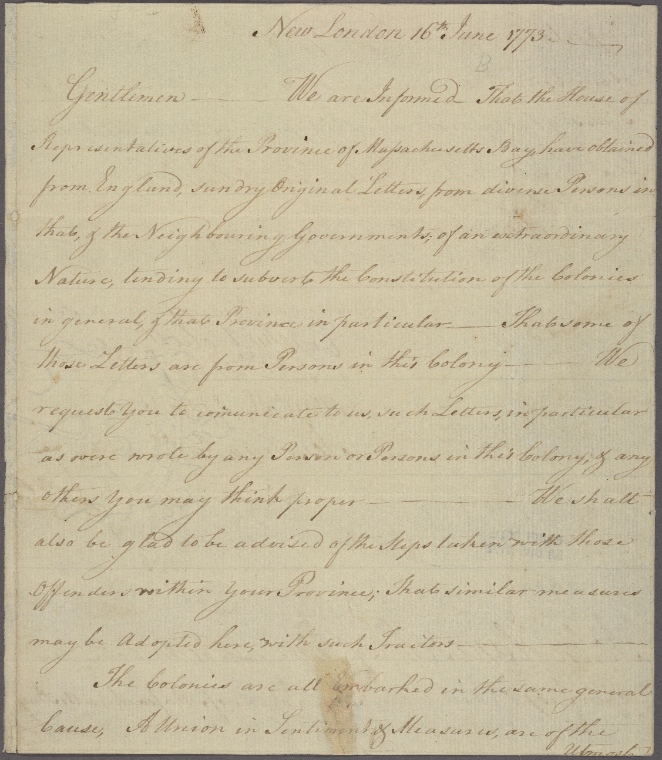 New London 16th June 1773
B
Gentlemen — We are Informed That the House of
Representatives of the Province of Massachusetts Bay, have obtained
from England, sundry Original Letters, from diverse Persons in
that, & the Neighbouring Governments; of an extraordinary
Nature, tending to subvert the Constitution of the Colonies
in general, & that Province in particular — That some of
those Letters are from Persons in this Colony — We
request You to comunicate to us, such Letters, in particular
as were wrote by any Person or Persons in this Colony; & any
others You may think proper — We shall
also be glad to be advised of the Steps taken with those
Offenders within Your Province; That similar measures
may be Adopted here, with such Traitors —
The Colonies are all Embarked in the same general
Cause, A Union in Sentiment & Measures, are of the
Utmost